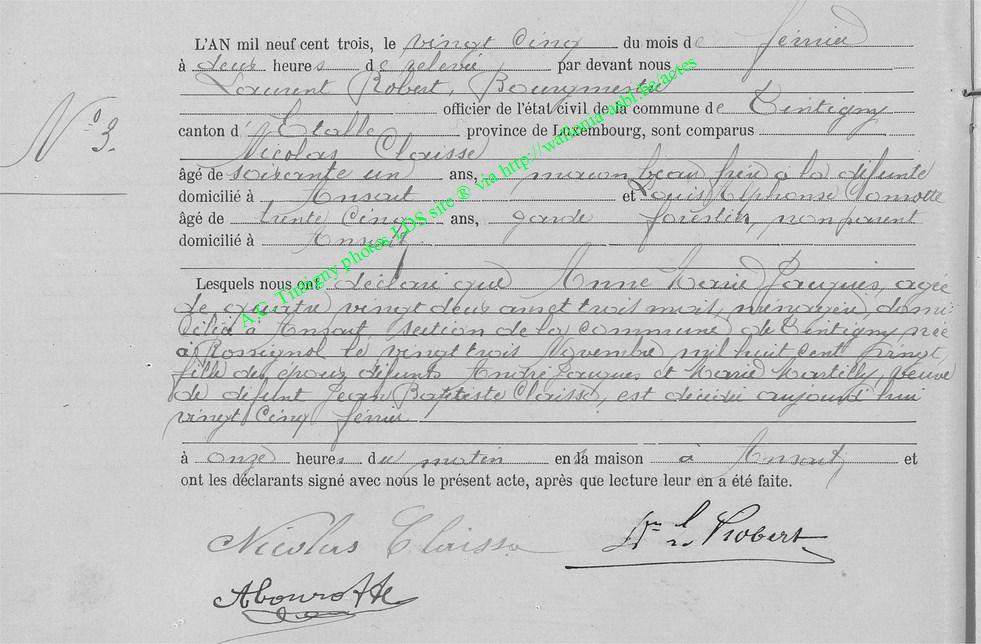 L'AN mil neuf cent trois, le vingt cinq du mois de février
à deux heures de relevée par devant nous
Laurent Robert, Bourgmestre
officier de l'état civil de la commune de Tintigny
canton d'Etalle province de Luxembourg, sont comparus
N° 3.
Nicolas Claisse
âgé de soixante un ans, maçon beau frère a la défunte
domicilié à Ansart et Louis Alphonse
âgé de trente cinq ans, garde forestier, non parent
domicilié à Ansart
Lesquels nous ont déclaré que Anne Marie Jacques, agée
de quatre vingt deux ans et trois mois, ménagère, domi
ciliée à Ansart section de la commune de Tintigny née
à Rossignol le vingt trois Novembre mil huit cent vingt,
fille des époux défunts André Jacques et Marie Martilly, veuve
de défunt Jean Baptiste Claisse, est décédée aujourd'hui
vingt cinq février
à onze heures du matin en sa maison à Ansart et
ont les déclarants signé avec nous le présent acte, après que lecture leur en a été faite.
Nicolas Claisse
Robert
A.C. Tintigny photos LDS site ® via http://wallonia-asbl.be/actes